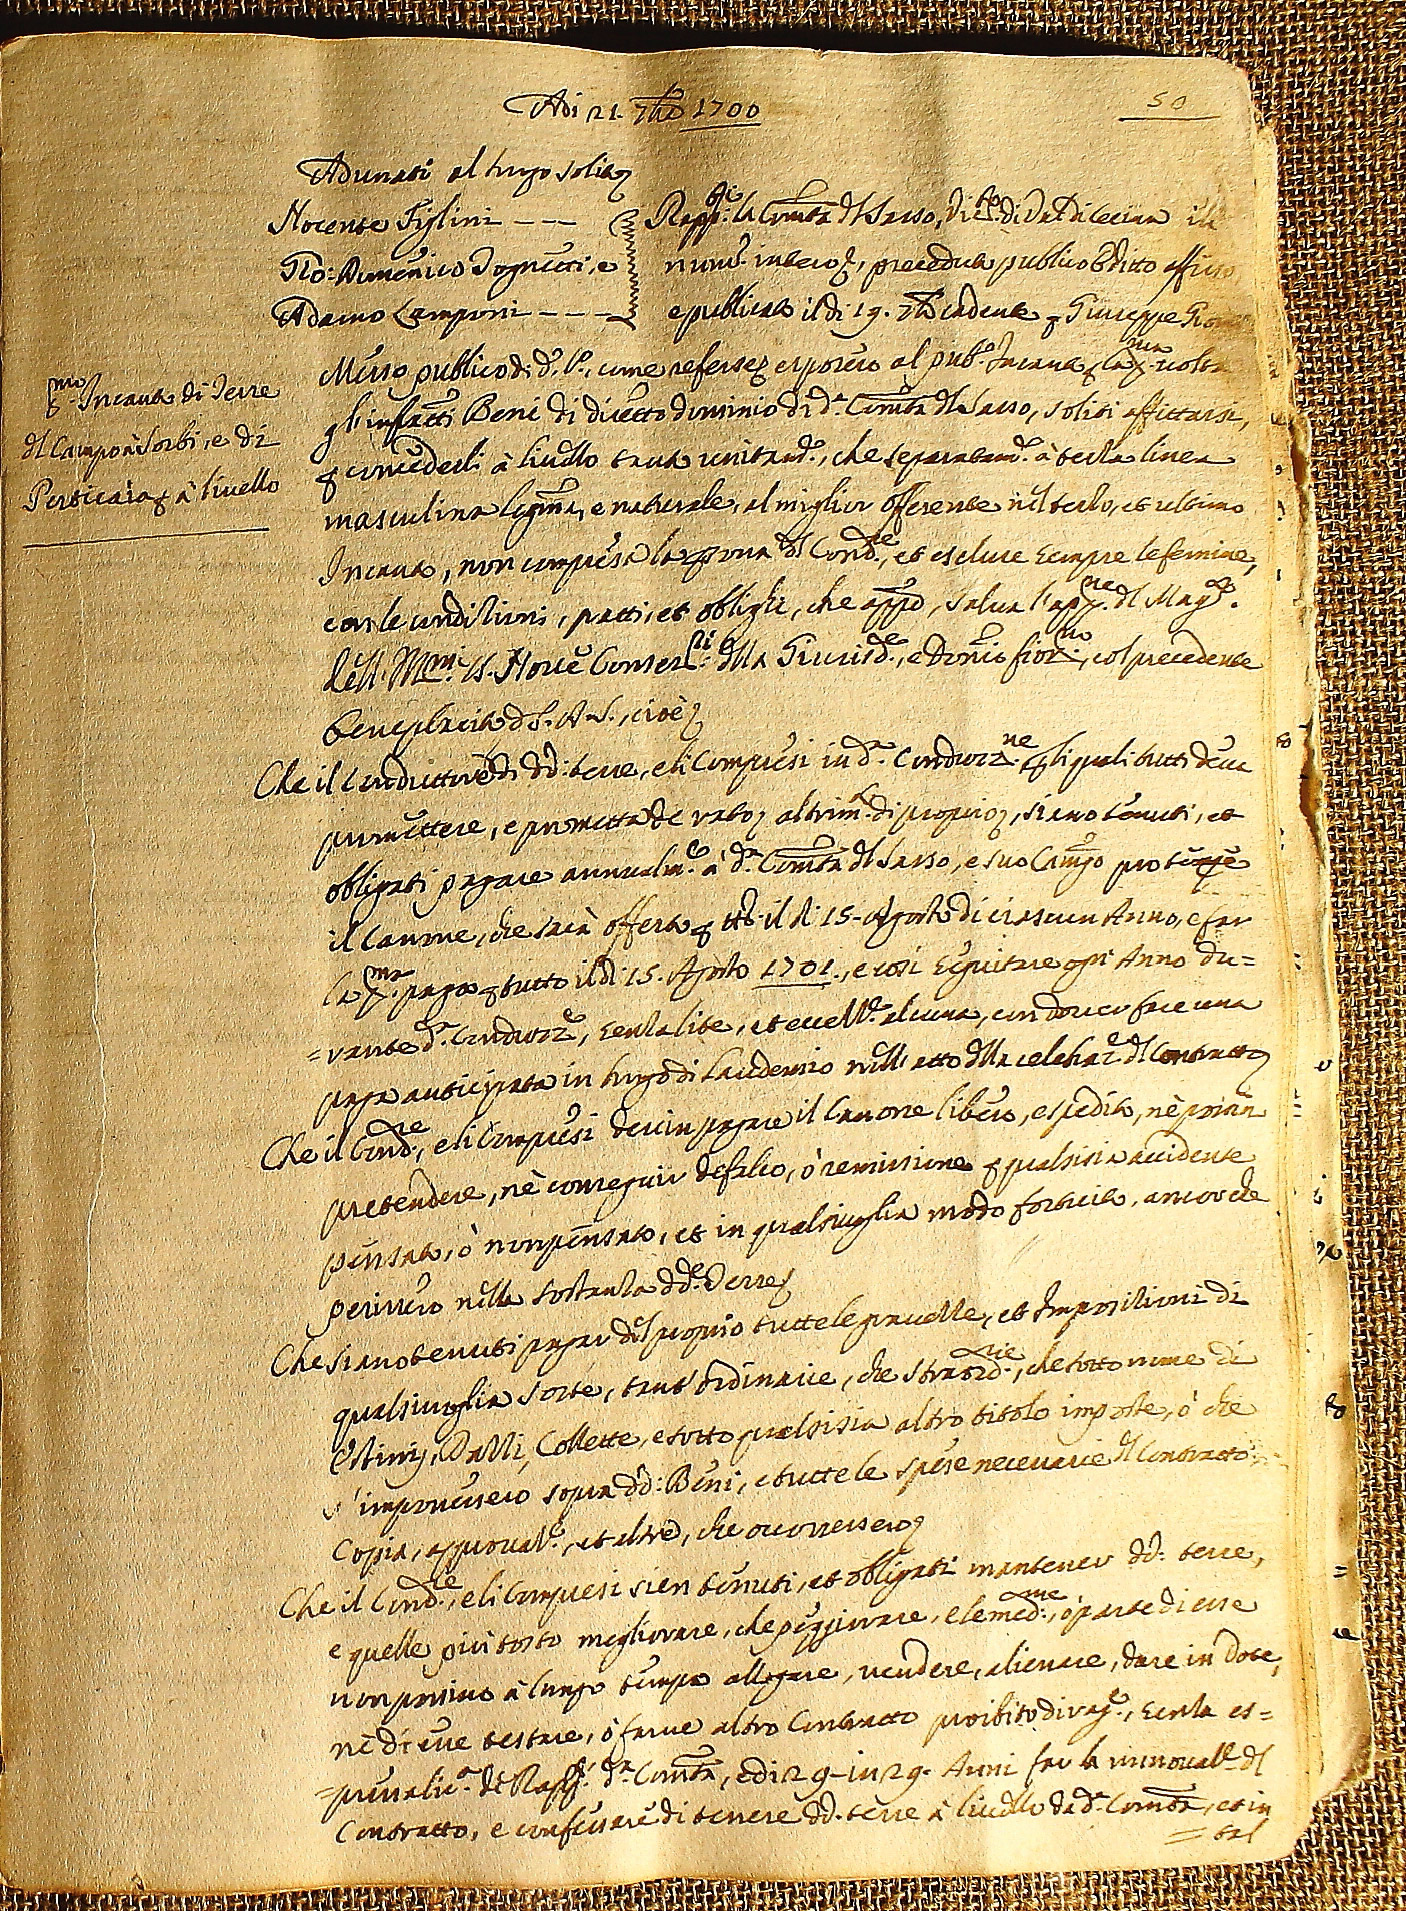 Adi 21. 7bre 1700
50
Adunati al luogo solito
Nocente Figlini - - -
Gio: Dumenico Tognetti, e
Adamo Lamponi - - - -
Rapp.ti la Com.tà dl Sasso, di Val di Cecina
num.o intero, precedute publico Editto affisso
e publicato il dì 19. 7bre cadente p Giuseppe
Messo publico di d.o l.o, come referse, esposero al pub.o Incanto p la p.ma volta
gl'infratti Beni di diretto dominio di d.a Com.tà dl Sasso, soliti affittarsi,
p concederli à livello tanto unitam.e, che separatam.e à terza linea
masculina legma, e naturale, al miglior offerente nel terzo, et ultimo
Incanto, non compresa la p.sona dl Cond.re, et escluse sempre le femine,
con le condizioni, patti, et oblighi, che app.o, salva l'app.ne dl Mag.to
dell' Ill.mi SS. Nove Conser.ri dlla Giurisd.e, e Dom.o fior.no, col precedente
beneplacito d S. A. S., cioè
p.mo Incanto di Terre
dl Campo à Sorbi, e di
Perticaia p à livello
Che il Conduttore di dd: terre, e li Compresi in d.a Conduz.ne p li quali tutti deva
promettere, e prometta de rato, altrim.ti di proprio, siano tenuti, et
obligati pagare annualm.e à d.a Com.tà dl Sasso, e suo Cam.go pro tempe
il Canone, che sarà offerto p tt.o il dì 15. Agosto di ciascun Anno, e far
la p.ma paga p tutto il dì 15. Agosto 1701., e così seguitare ogni Anno du=
=rante d.a Conduz.e, senza lite, et eccezz.e alcuna, con dover fare una
paga anticipata in luogo di Laudemio nell' atto dlla celebraz.e dl Contratto
Che il Cond.re, e li Compresi devin pagare il Canone libero, e spedito, nè possin
pretendere, nè conseguir defalco, ò remissione p qualsisia accidente
pensato, ò non pensato, et in qualsivoglia modo fortuito, ancorche
perissero nella sostanza dd.e Terre
Che siano tenuti pagar del proprio tutte le gravezze, et Imposizioni di
qualsivoglia sorte, tant' ordinarie, che straord.rie, che sotto nome di
Estimi, Dazzi, Collette, e sotto qualsisia altro titolo imposte, ò che
s'imponessero sopra dd: Beni, e tutte le spese necessarie dl Contratto,
Copia, approvaz.e, et altre, che occorressero
Che il Cond.re, e li Compresi sien tenuti, et obligati mantener dd: terre,
e quelle più tosto megliorare, che peggiorare, e le med.me, ò parte di esse
non possino à lungo tempo allogare, vendere, alienare, dare in dote,
nè di esse testare, ò farne altro Contratto proibito di rag.e, senza es=
=pressa lic.a de Rapp.ti d.a Com.tà, e di 29. in 29. Anni far la rinnovaz.e dl
Contratto, e confessare di tenere dd. terre à livello da d.a Com.tà, et in
= tal